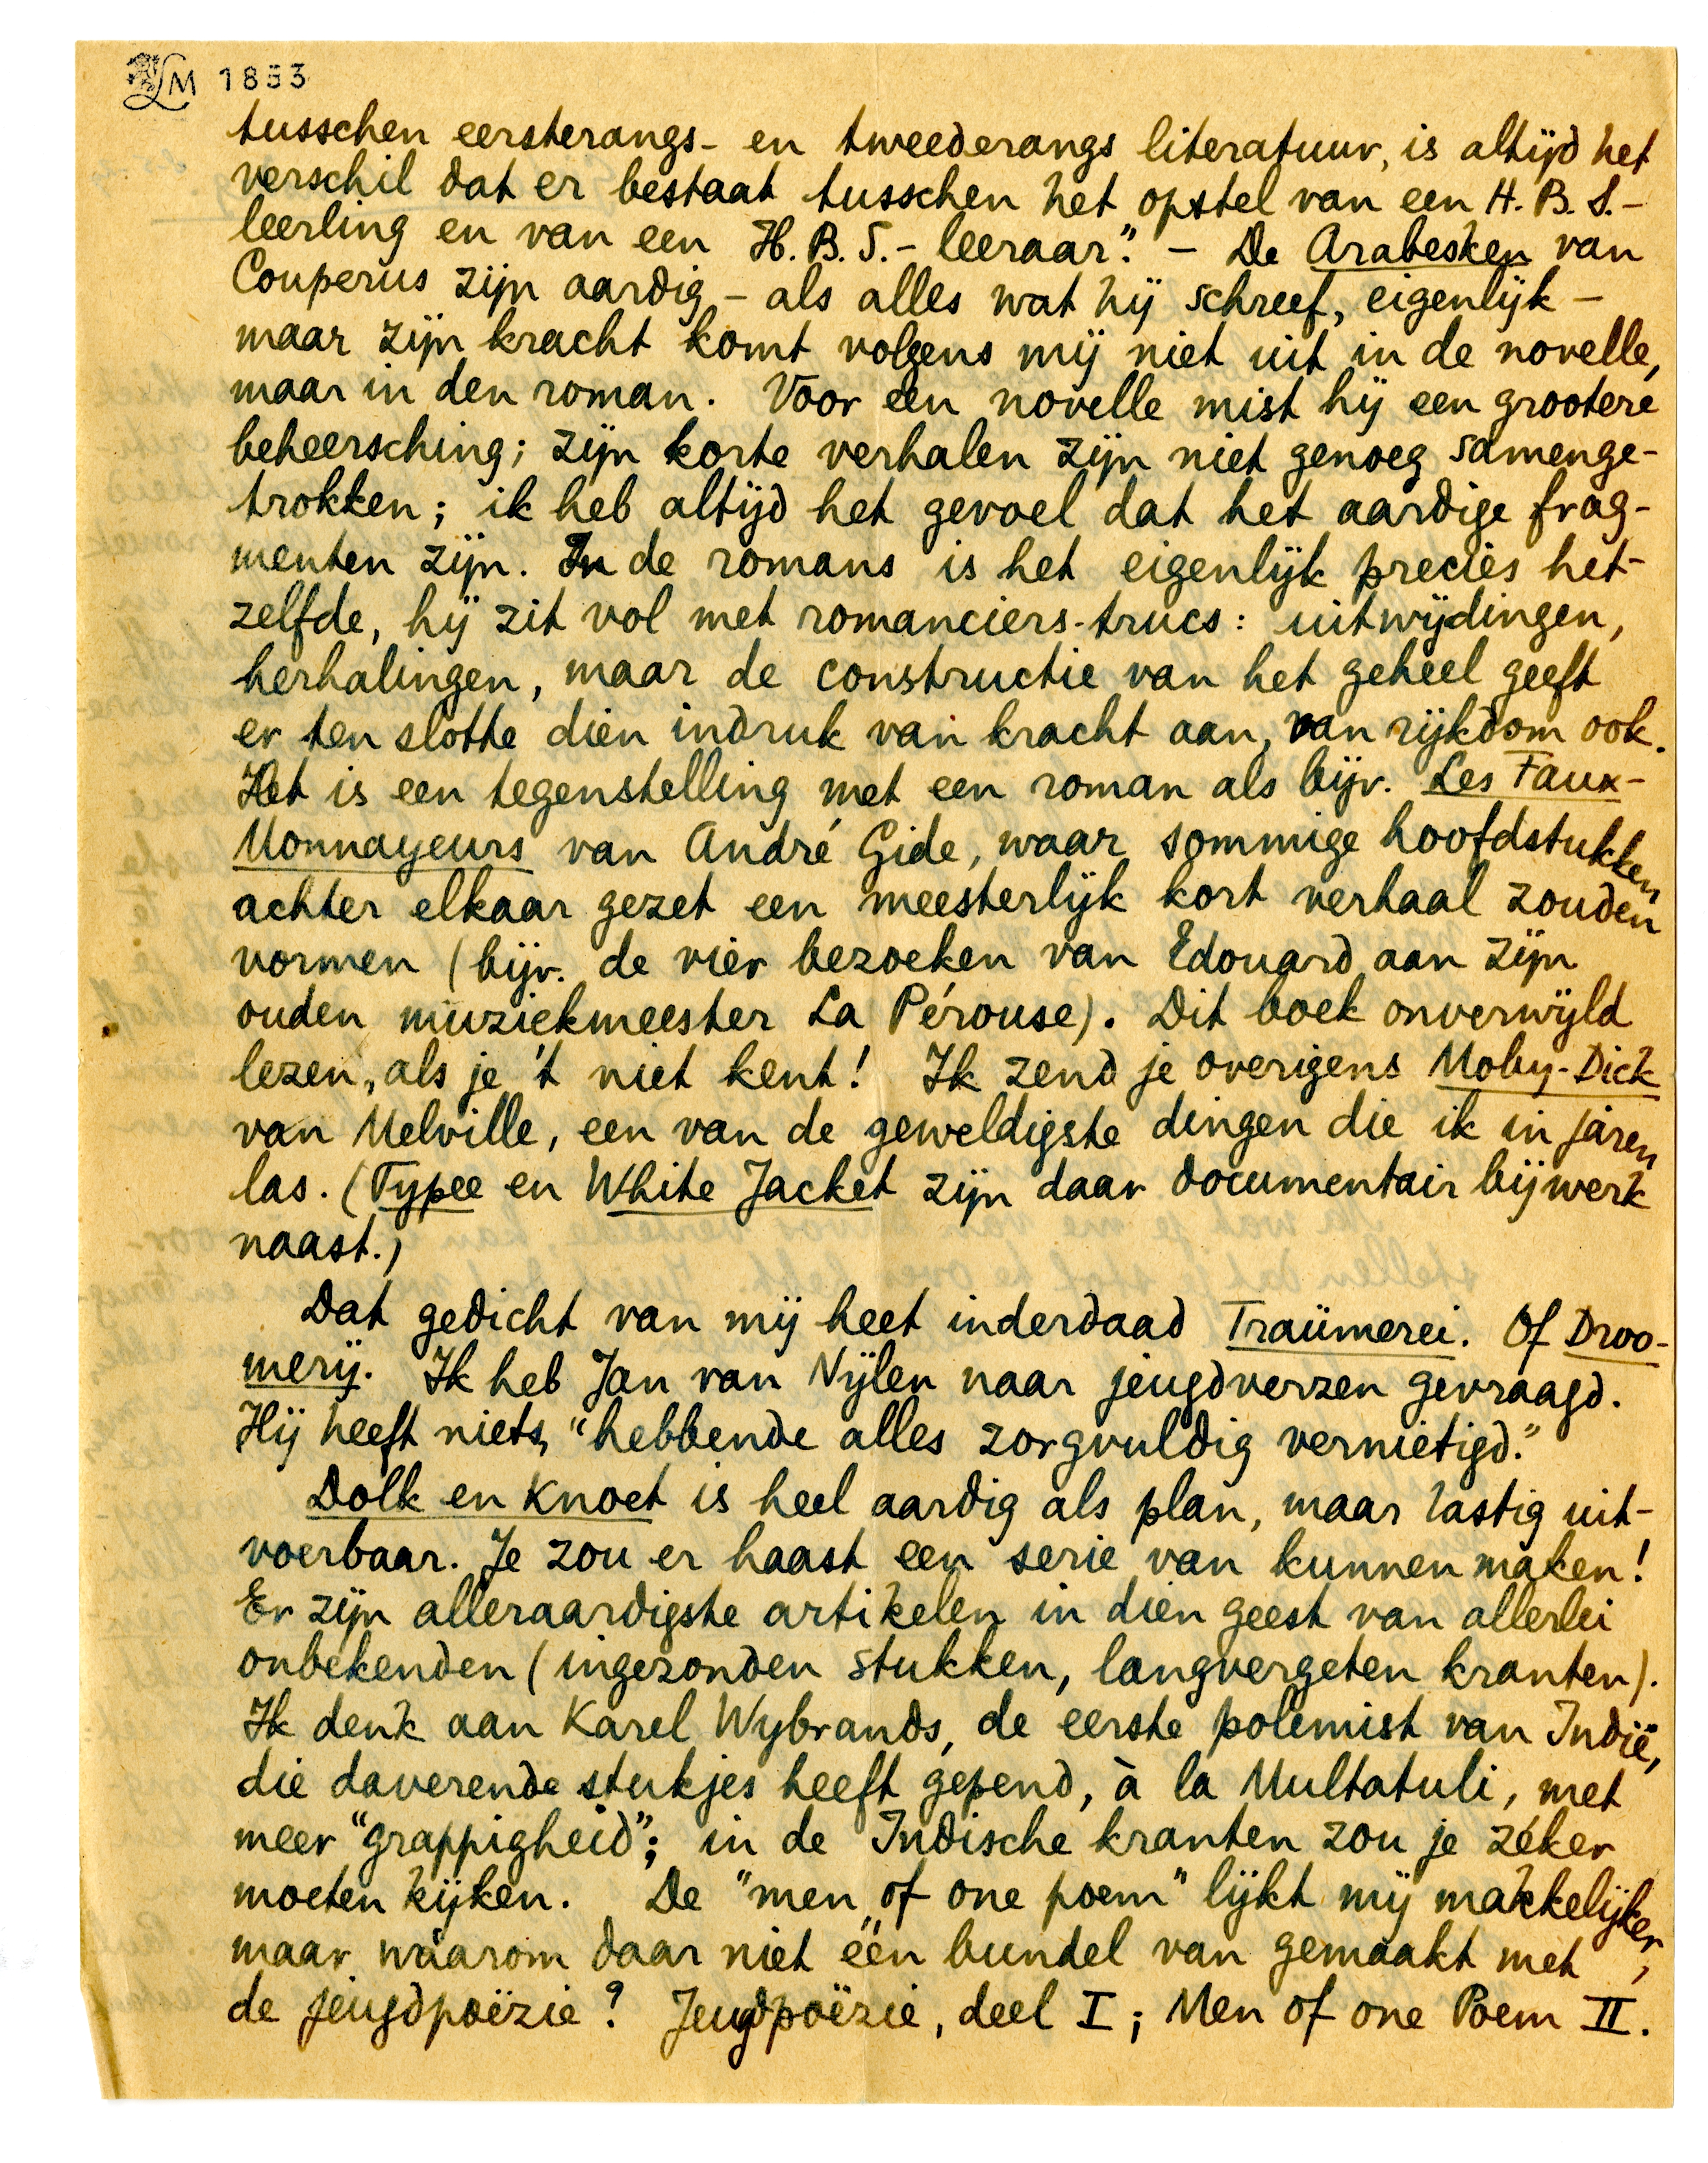 LM 1853
tusschen eersterangs- en tweederangs literatuur, is altijd het
verschil dat er bestaat tusschen het opstel van een H.B.S.-
leerling en van een H.B.S.-leeraar". – De Arabesken van
Couperus zijn aardig – als alles wat hij schreef, eigenlijk –
maar zijn kracht komt volgens mij niet uit in de novelle,
maar in den roman. Voor een novelle mist hij een grootere
beheersching; zijn korte verhalen zijn niet genoeg samenge-
trokken; ik heb altijd het gevoel dat het aardige frag-
menten zijn. In de romans is het eigenlijk precies het-
zelfde, hij zit vol met romanciers-trucs: uitwijdingen,
herhalingen, maar de constructie van het geheel geeft
er ten slotte dien indruk van kracht aan, van rijkdom ook.
Het is een tegenstelling met een roman als bijv. Les Faux-
Monnayeurs van André Gide, waar sommige hoofdstukken
achter elkaar gezet een meesterlijk kort verhaal zouden
vormen (bijv. de vier bezoeken van Edouard aan zijn
ouden muziekmeester La Pérouse). Dit boek onverwijld
lezen, als je 't niet kent! Ik zend je overigens Moby-Dick
van Melville, een van de geweldigste dingen die ik in jaren
las. (Typee en White Jacket zijn daar documentair bijwerk
naast.)
Dat gedicht van mij heet inderdaad Traümerei. Of Droo-
merij. Ik heb Jan van Nijlen naar jeugdverzen gevraagd.
Hij heeft niets, "hebbende alles zorgvuldig vernietigd."
Dolk en Knoet is heel aardig als plan, maar lastig uit-
voerbaar. Je zou er haast een serie van kunnen maken!
Er zijn alleraardigste artikelen in dien geest van allerlei
onbekenden (ingezonden stukken, langvergeten kranten).
Ik denk aan Karel Wybrands, de eerste polemist van Indië,
die daverende stukjes heeft gepend, à la Multatuli, met
meer "grappigheid"; in de Indische kranten zou je zéker
moeten kijken. De "men of one poem" lijkt mij makkelijker,
maar waarom daar niet één bundel van gemaakt met
de jeugdpoëzie? Jeugdpoëzie, deel I; Men of one Poem II.